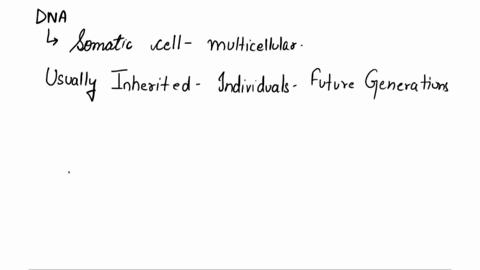 DNA
↳ Somatic cell- multicellular.
Usually Inherited- Individuals- Future Generations